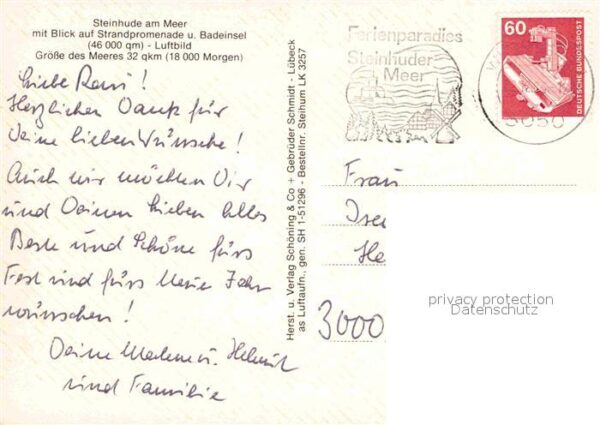 Steinhude am Meer
mit Blick auf Strandpromenade u. Badeinsel
(46 000 qm) - Luftbild
Größe des Meeres 32 qkm (18 000 Morgen)
Liebe
Herzlichen Dank für
Deine lieben Wünsche!
Auch wir möchten Dir
und Deinen Lieben Alles
Beste und Schöne fürs
Fest und fürs Neue Jahr
wünschen!
Deine u. Helmut
und Familie
Herst. u. Verlag Schöning & Co + Gebrüder Schmidt - Lübeck
als Luftaufn., gen. SH 1-51296 - Bestellnr. Steihum LK 3257
Ferienparadies
Steinhuder
Meer
60
DEUTSCHE BUNDESPOST
3050
Frau
3000
privacy protection
Datenschutz